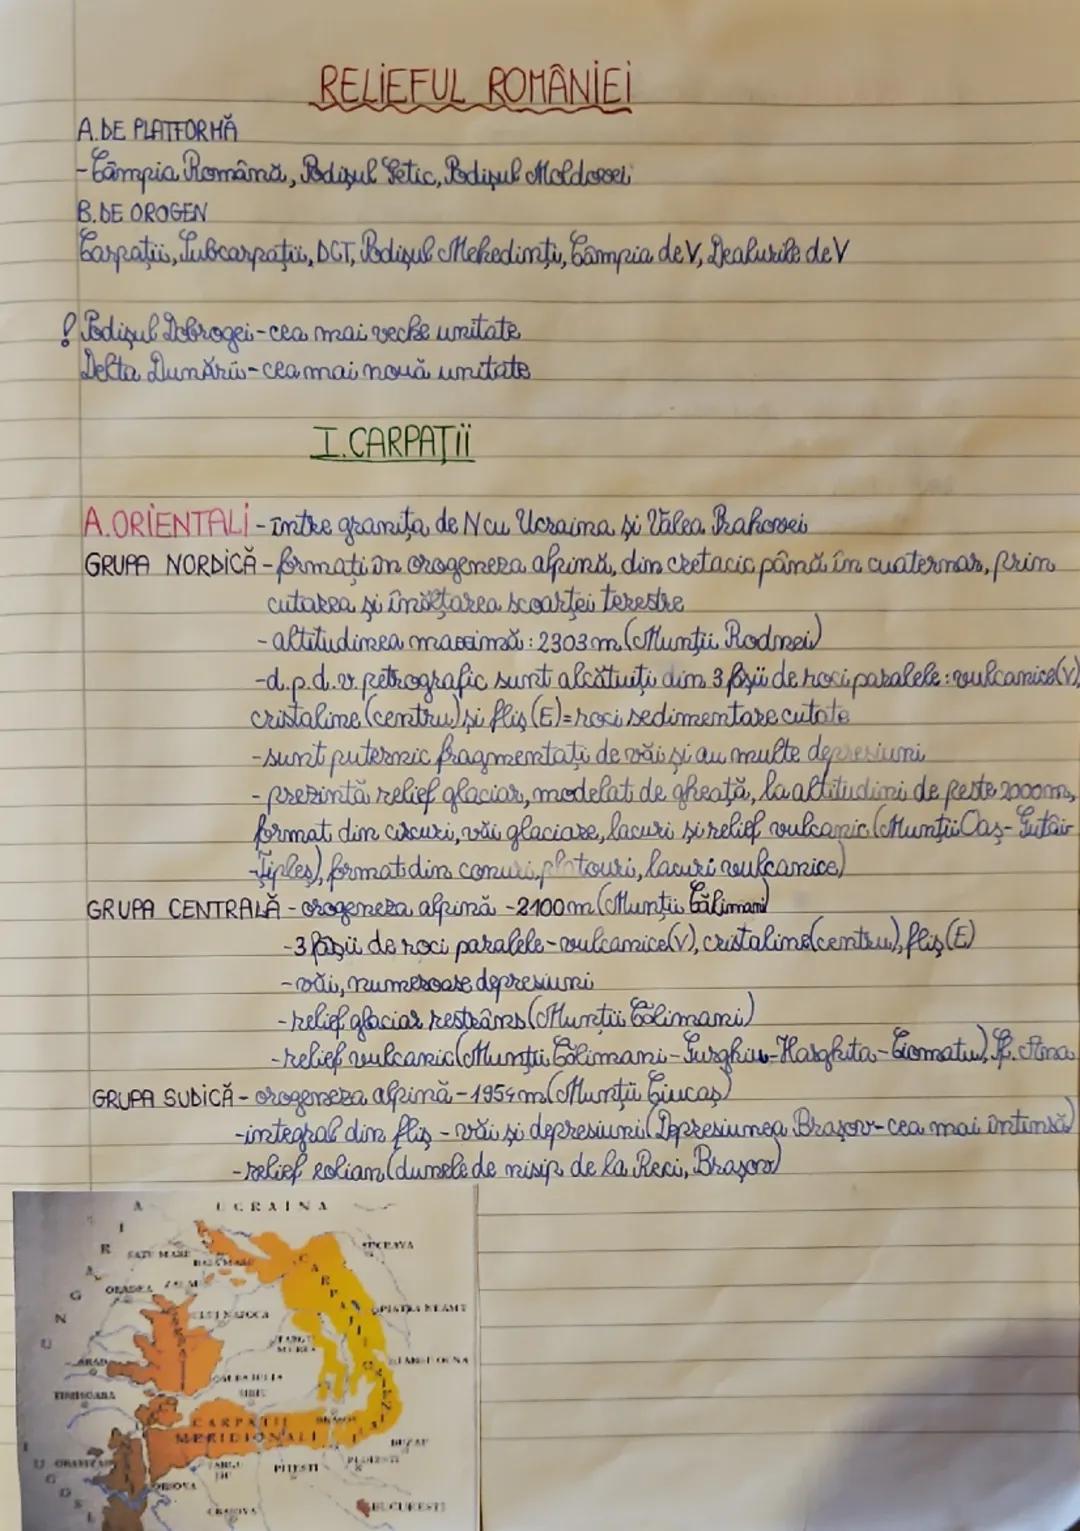 RELIEFUL ROMÂNIEI
A. DE PLATFORMĂ
-Câmpia Română, Podișul Getic, Podișul Moldovei
B. DE OROGEN
Carpații, Subcarpații, DCT, Podișul Mehedinți, Câmpia de V, Dealurile de V
! Podișul Dobrogei-cea mai veche unitate
Delta Dunării-cea mai nouă unitate
I. CARPAȚII
A. ORIENTALI - între granița de N cu Ucraina și Valea Prahovei
GRUPA NORDICĂ - formați în orogeneza alpină, din cretacic până în cuaternar, prin
cutarea și înălțarea scoarței terestre
- altitudinea maximă: 2303 m (Munții Rodnei)
-d.p.d.v. petrografic sunt alcătuiți din 3 fâșii de roci paralele: vulcanice(V),
cristaline (centru) și fliș (E)= roci sedimentare cutate
-sunt puternic fragmentați de văi și au multe depresiuni
- prezintă relief glaciar, modelat de gheață, la altitudini de peste 2000m,
format din circuri, văi glaciare, lacuri și relief vulcanic (Munții Oaș- Gutâi-
-Țibleș), format din conuri, platouri, lacuri vulcanice)
GRUPA CENTRALĂ - orogeneza alpină -2100m (Munții Călimani)
-3 fâșii de roci paralele-vulcanice(V), cristaline(centru), fliș(E)
-văi, numeroase depresiuni
-relief glaciar restrâns (Munții Călimani)
-relief vulcanic (Munții Călimani-Gurghiu-Harghita-Ciomatu), Sf. Ana
GRUPA SUDICĂ - orogeneza alpină - 1954m (Munții Ciucaș)
-integral din fliș - văi și depresiuni (Depresiunea Brașov-cea mai întinsă)
-relief eolian (dunele de nisip de la Reci, Brașov)
UCRAINA
UNGARIA
SUCEAVA
SATU MARE
BAIA MARE
ORADEA
ZALAU
CLUJ NAPOCA
PIATRA NEAMT
TARGU
MURES
TARGU OCNA
ARAD
ALBA IULIA
TIMISOARA
SIBIU
CARPATII ORIENTALI
CARPATII
MERIDIONALI
BRASOV
BUZAU
ORAVITA
TARGU
JIU
PITESTI
PLOIESTI
ORSOVA
CRAIOVA
BUCURESTI